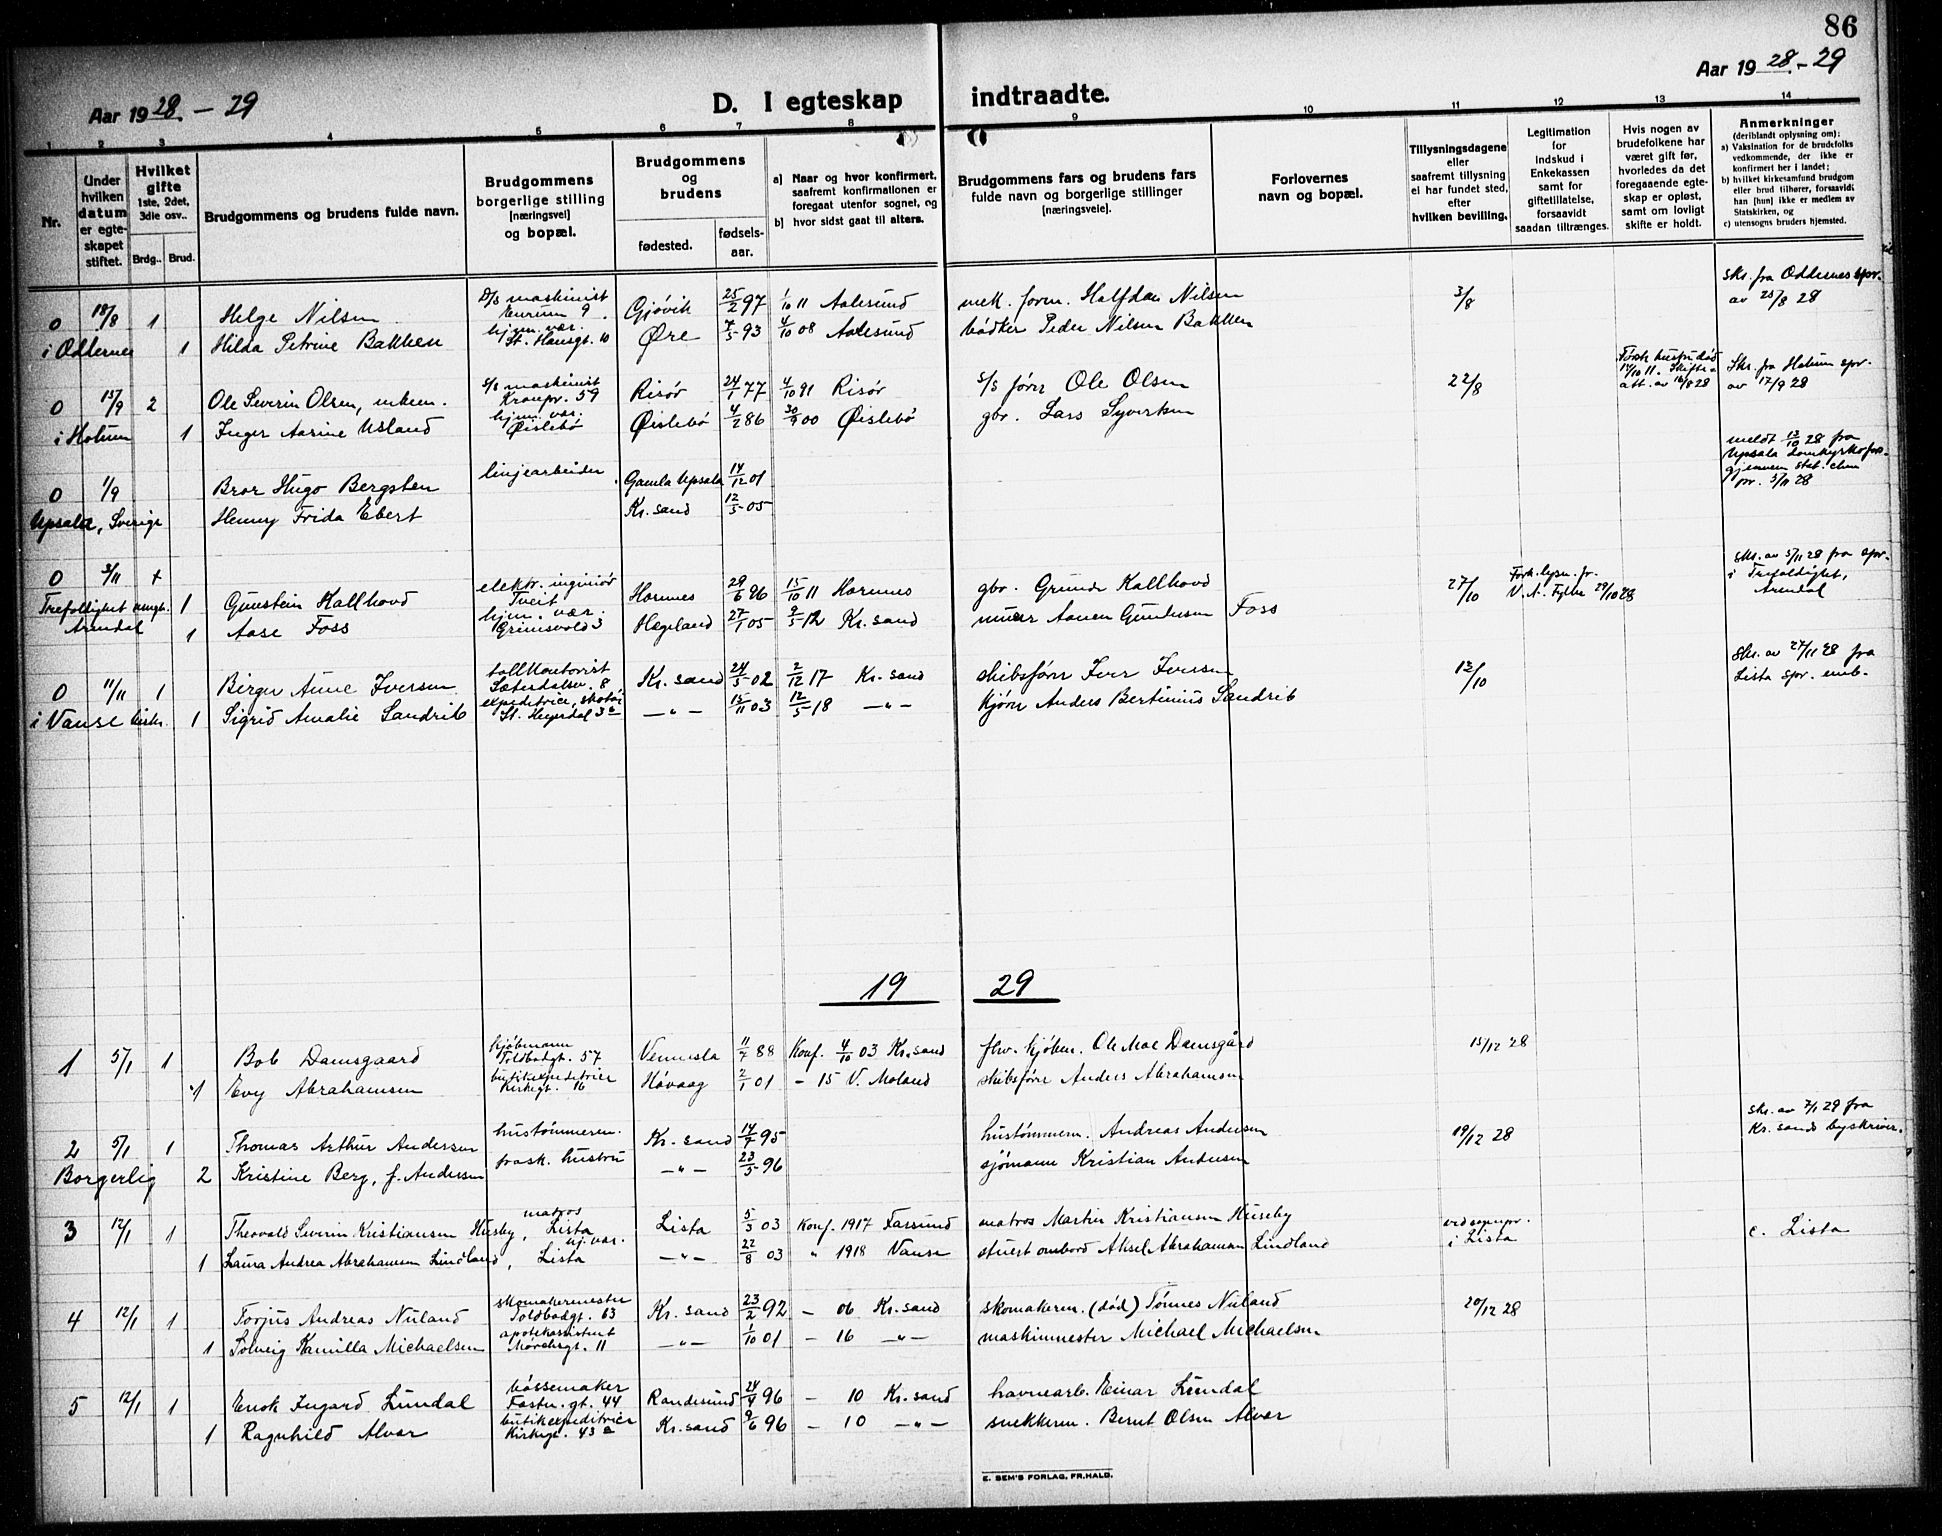 86
Aar 1928 - 29
D. I egteskap indtraadte.
Aar 1928 - 29
1 2 3 4 5 6 7 8 9 10 11 12 13 14
Nr.
Under hvilken datum er egte-skapet stiftet.
Hvilket gifte 1ste, 2det, 3die osv..
Brdg.. Brud.
Brudgommens og brudens fulde navn.
Brudgommens borgerlige stilling [næringsvei] og bopæl.
Brudgommens og brudens
fødested.
fødsels-aar.
a] Naar og hvor konfirmert, saafremt konfirmationen er foregaat utenfor sognet, og
b] hvor sidst gaat til alters.
Brudgommens fars og brudens fars fulde navn og borgerlige stillinger [næringsveie].
Forlovernes navn og bopæl.
Tillysningsdagene eller saafremt tillysning ei har fundet sted, efter hvilken bevilling.
Legitimation for indskud i Enkekassen samt for giftetillatelse, forsaavidt saadan tiltrænges.
Hvis nogen av brudefolkene har været gift før, hvorledes da det foregaaende egte-skap er opløst, samt om lovligt skifte er holdt.
Anmerkninger
(deriblandt oplysning om):
a) Vaksination for de brudefolks vedkommende, der ikke er konfirmert her i landet;
b) hvilket kirkesamfund brudgom eller brud tilhører, forsaavidt han [hun] ikke er medlem av Statskirken, og
c) utensogns bruders hjemsted.
0 18/8 1 Helge Nilsen D/S maskinist Gjøvik 25/2 97 1/10 11 Aalesund mek. form. Halfdan Nilsen 3/8 skr. fra Oddernes spr. av 25/8 28
i Oddernes 1 Hilda Petrine Bakken hjem. vær. St. Hansgt. 10 Øre 7/5 93 4/10 08 Aalesund bødker Peder Nilsen Bakken
0 15/9 2 Ole Severin Olsen, enkem. S/S maskinist Kronpr. 59 Risør 24/1 77 4/10 91 Risør S/S fører Ole Olsen 22/8 att. av 16/8 28 Skr. fra Holum spr. av 17/9 28
i Holum 1 Inger Aasine Usland hjem. vær. Øislebø Øislebø 4/2 86 30/9 00 Øislebø gbr. Lars Syvertsen
0 1/9 Bror Hugo Bergsten linjearbeider Gamla Upsala 14/12 01 meldt 13/10 28 fra Upsala Domkyrkofors. gjennem
Upsala, Sverige Henny Frida Ebert Kr. sand 12/5 05
0 3/11 + 1 Gunstein Kallhovd elektr. ingeniør Tveit Hornnes 29/6 96 15/10 11 Hornnes gbr. Gunde Kallhovd 27/10 29/10 28 skr. av 5/11 28 fra spr. i Trefoldighet, Arendal
Trefoldighet Arendal 1 Aase Foss hjem. vær. Grimsvold 3 Hægeland 27/1 05 9/5 12 Kr. sand murer Aanen Gundersen Foss
0 11/11 1 Birger Aune Iversen tollkontorist Sætersdalsv. 8 Kr. sand 24/5 02 2/12 17 Kr. sand skibsfører Iver Iversen 13/10 skr. av 27/11 28 fra Lista spr. emb.
i Vanse kirke. 1 Sigrid Amalie Sandrib expeditrice, St. Hegrdal 3a -"- 15/11 03 12/5 18 -"- kjører Anders Bertinius Sandrib
19 29
1 5/1 1 Bob Damsgaard kjøbmann Toldbodgt. 57 Vennesla 11/7 88 Konf. 4/10 03 Kr. sand fhv. kjøbm. Ole Moe Damsgård 15/12 28
1 Evy Abrahamsen butikexpeditrice Kirkegt. 16 Høvaag 2/1 01 - 15 V. Moland skibsfører Anders Abrahamsen
2 5/1 1 Thomas Arthur Andersen hustømmerm. Kr. sand 14/7 95 hustømmerm. Andreas Andersen 19/12 28 skr. av 7/1 29 fra Kr. sands byskriver.
Borgerlig 2 Kristine Berg, f. Andersen frask. hustru -"- 23/5 96 sjømann Kristian Andersen
3 12/1 1 Theovald Severin Kristiansen Husby, matros Lista Lista 5/3 03 Konf. 1917 Farsund matros Martin Kristiansen Huseby ved sognepr. i Lista c. Lista
1 Laura Andrea Abrahamsen Lindland, hj. vær. Lista -"- 22/8 03 " 1918 Vanse stuert ombord Aksel Abrahamsen Lindland
4 12/1 1 Torjus Andreas Nuland skomakermester Toldbodgt. 63 Kr. sand 23/2 92 - 06 Kr. sand skomakerm. (død) Tønnes Nuland 20/12 28
1 Solveig Kamilla Michaelsen apotekassistent 11 -"- 1/10 01 - 16 -"- maskinmester Michael Michaelsen
5 12/1 1 Enok Ingard Lundal bøssemaker Fæstn. gt. 44 Randesund 24/4 96 - 10 Kr. sand havnearb. Einar Lundal
1 Ragnhild Alvar butikexpeditrice Kirkegt. 43a Kr. sand 9/6 96 - 10 -"- snekkerm. Bernt Olsen Alvar
E. SEM'S FORLAG, FR.HALD.